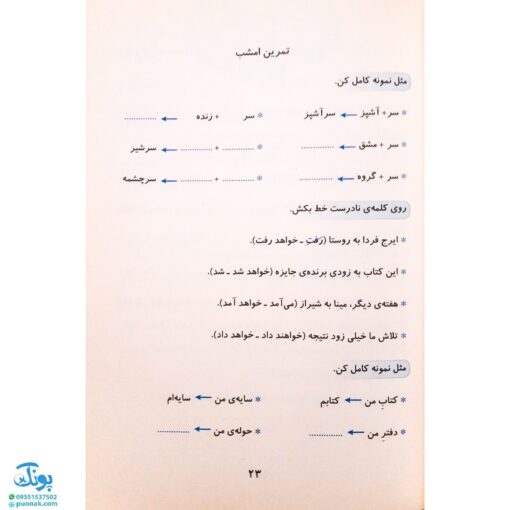 تمرین امشب
مثل نمونه کامل کن.
* سر + آشپز ← سرآشپز * سر + زنده ← ..............
* سر + مشق ← .............. * .............. + .............. ← سرشیر
* سر + گروه ← .............. * .............. + .............. ← سرچشمه
روی کلمه‌ی نادرست خط بکش.
* ایرج فردا به روستا (رَفت ـ خواهد رفت).
* این کتاب به زودی برنده‌ی جایزه (خواهد شد ـ شد).
* هفته‌ی دیگر، مینا به شیراز (می‌آمد ـ خواهد آمد).
* تلاش ما خیلی زود نتیجه (خواهند داد ـ خواهد داد).
مثل نمونه کامل کن.
* کتابِ من ← کتابم * سایه‌ی من ← سایه‌ام
* دفترِ من ← .............. * حوله‌ی من ← ..............
۲۳
پونک
09351537502
puonak.com